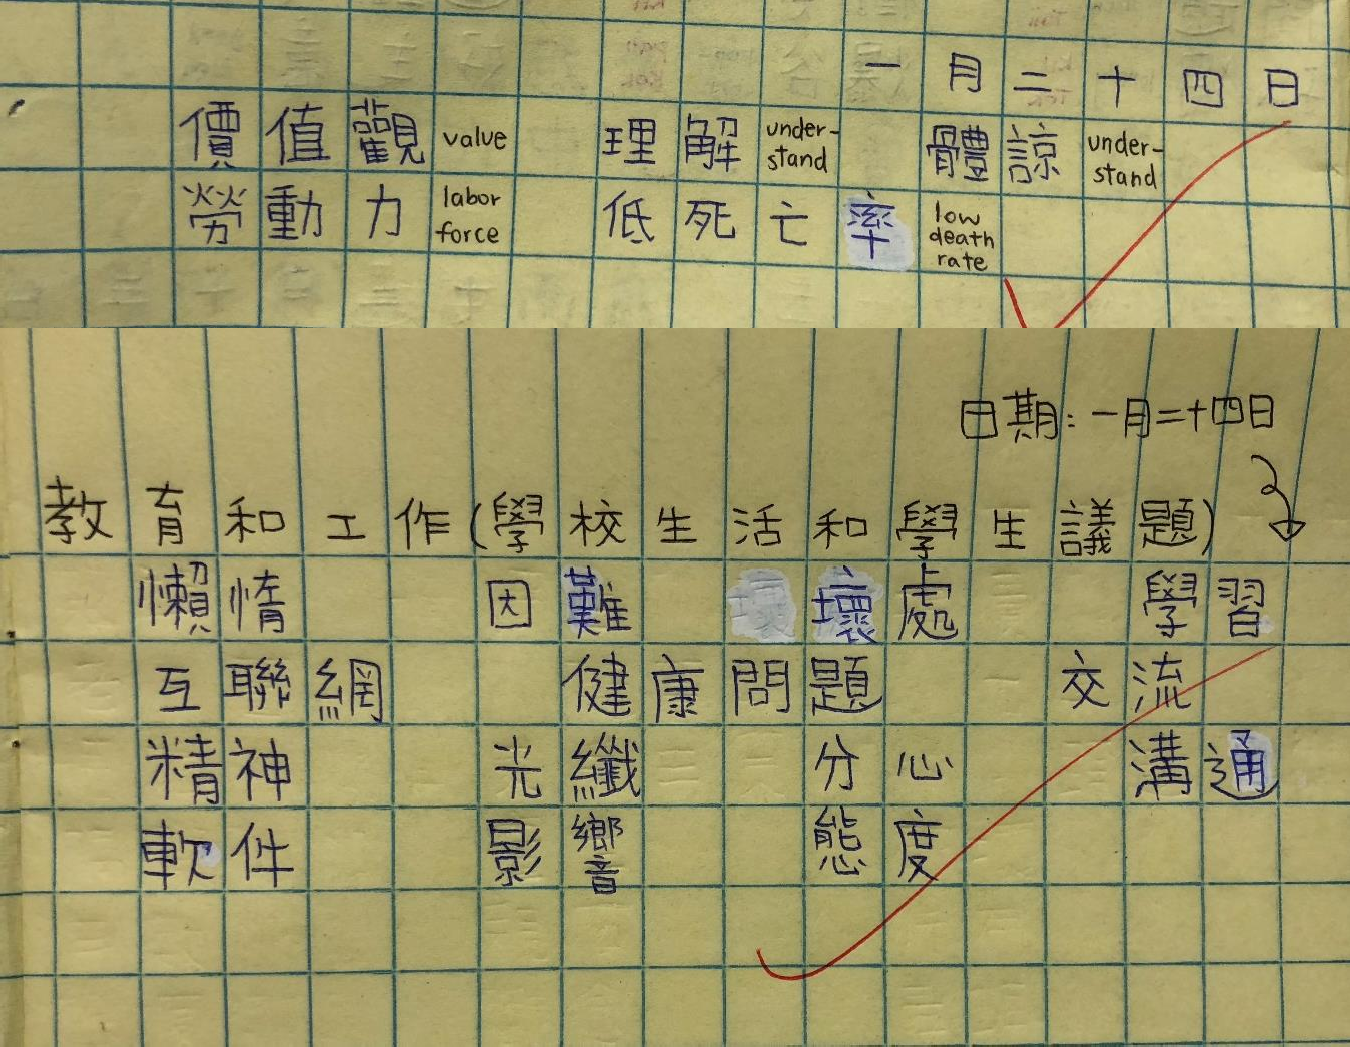 一月二十四日
價值觀 value 理解 under-stand 體諒 under-stand
勞動力 labor force 低死亡率 low death rate
日期：一月二十四日
教育和工作(學校生活和學生議題)
懶惰 因難 壞處 學習
互聯網 健康問題 交流
精神 光纖 分心 溝通
軟件 影響 態度